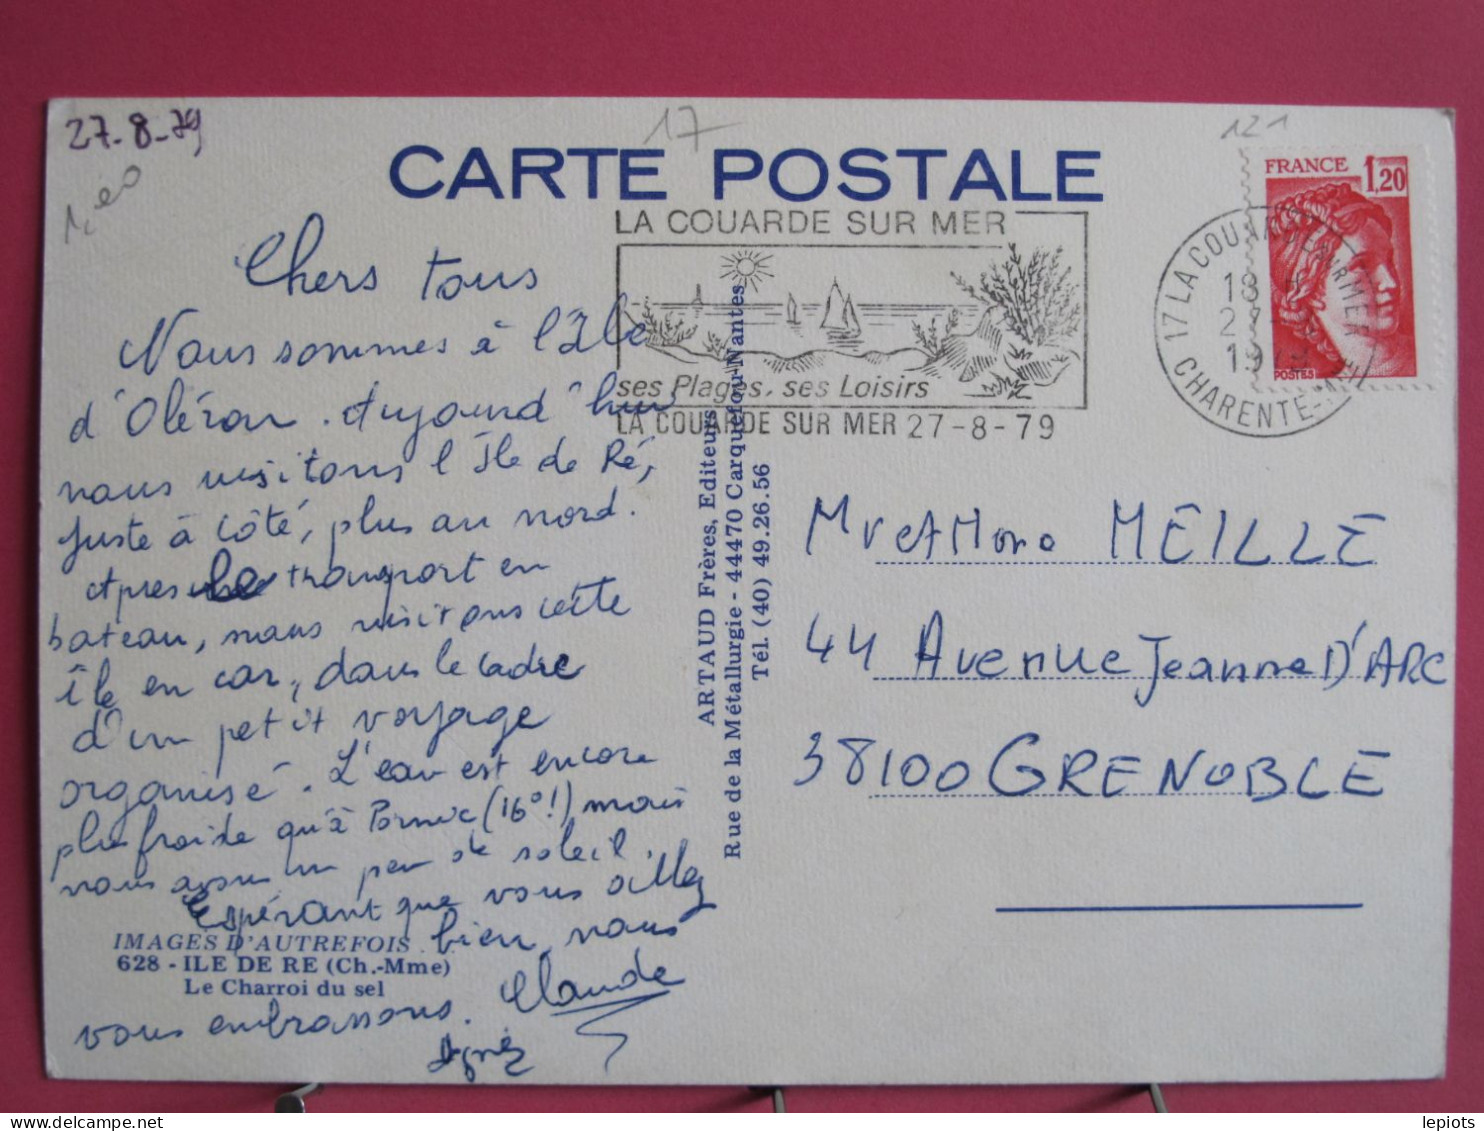 27-8-79
17
121
CARTE POSTALE
FRANCE 1,20
POSTES
LA COUARDE SUR MER
ses Plages, ses Loisirs
LA COUARDE SUR MER 27-8-79
17 LA COUARDE SUR MER
18 H
27-8
1979
CHARENTE-MME
Chers tous
Nous sommes à l'Ile
d'Oléron. Aujourd'hui
nous visitons l'île de Ré,
juste à côté, plus au nord.
Après le transport en
bateau, nous visitons cette
île en car, dans le cadre
d'un petit voyage
organisé. L'eau est encore
plus froide qu'à Pornic (16°!) mais
nous avons un peu de soleil.
Espérant que vous allez
bien, nous
vous embrassons. Claude
Agnès
IMAGES D'AUTREFOIS
628 - ILE DE RE (Ch.-Mme)
Le Charroi du sel
ARTAUD Frères, Editeurs
Rue de la Métallurgie - 44470 Carquefou-Nantes
Tél. (40) 49.26.56
Mr et Mme MEILLE
44 Avenue Jeanne D'ARC
38100 GRENOBLE
lepiots